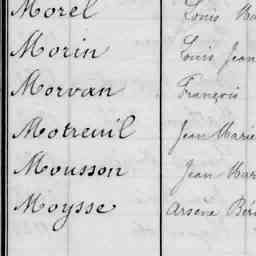 Morel Louis
Morin Louis Jean
Morvan François
Motreuil Jean Marie
Mousson Jean Mar
Moysse Arsène Bér